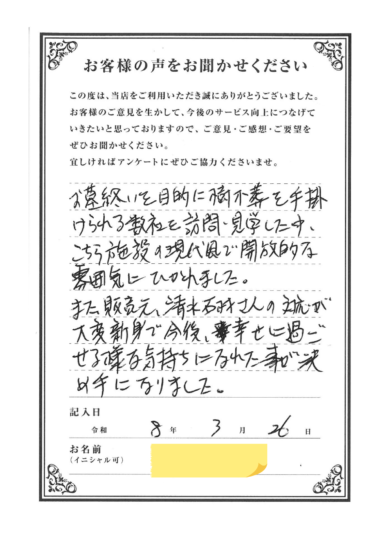 お客様の声をお聞かせください
この度は、当店をご利用いただき誠にありがとうございました。
お客様のご意見を生かして、今後のサービス向上につなげて
いきたいと思っておりますので、ご意見・ご感想・ご要望を
ぜひお聞かせください。
宜しければアンケートにぜひご協力くださいませ。
お墓終いを目的に樹木葬を手掛
けられる数社を訪問・見学した中、
こちら施設の現代風で開放的な
雰囲気にひかれました。
また販売元、清水石材さんの対応が
大変親身で今後、幸せに過ご
せる様な気持ちになれた事が決
め手になりました。
記入日
令和 8 年 3 月 26 日
お名前
(イニシャル可)